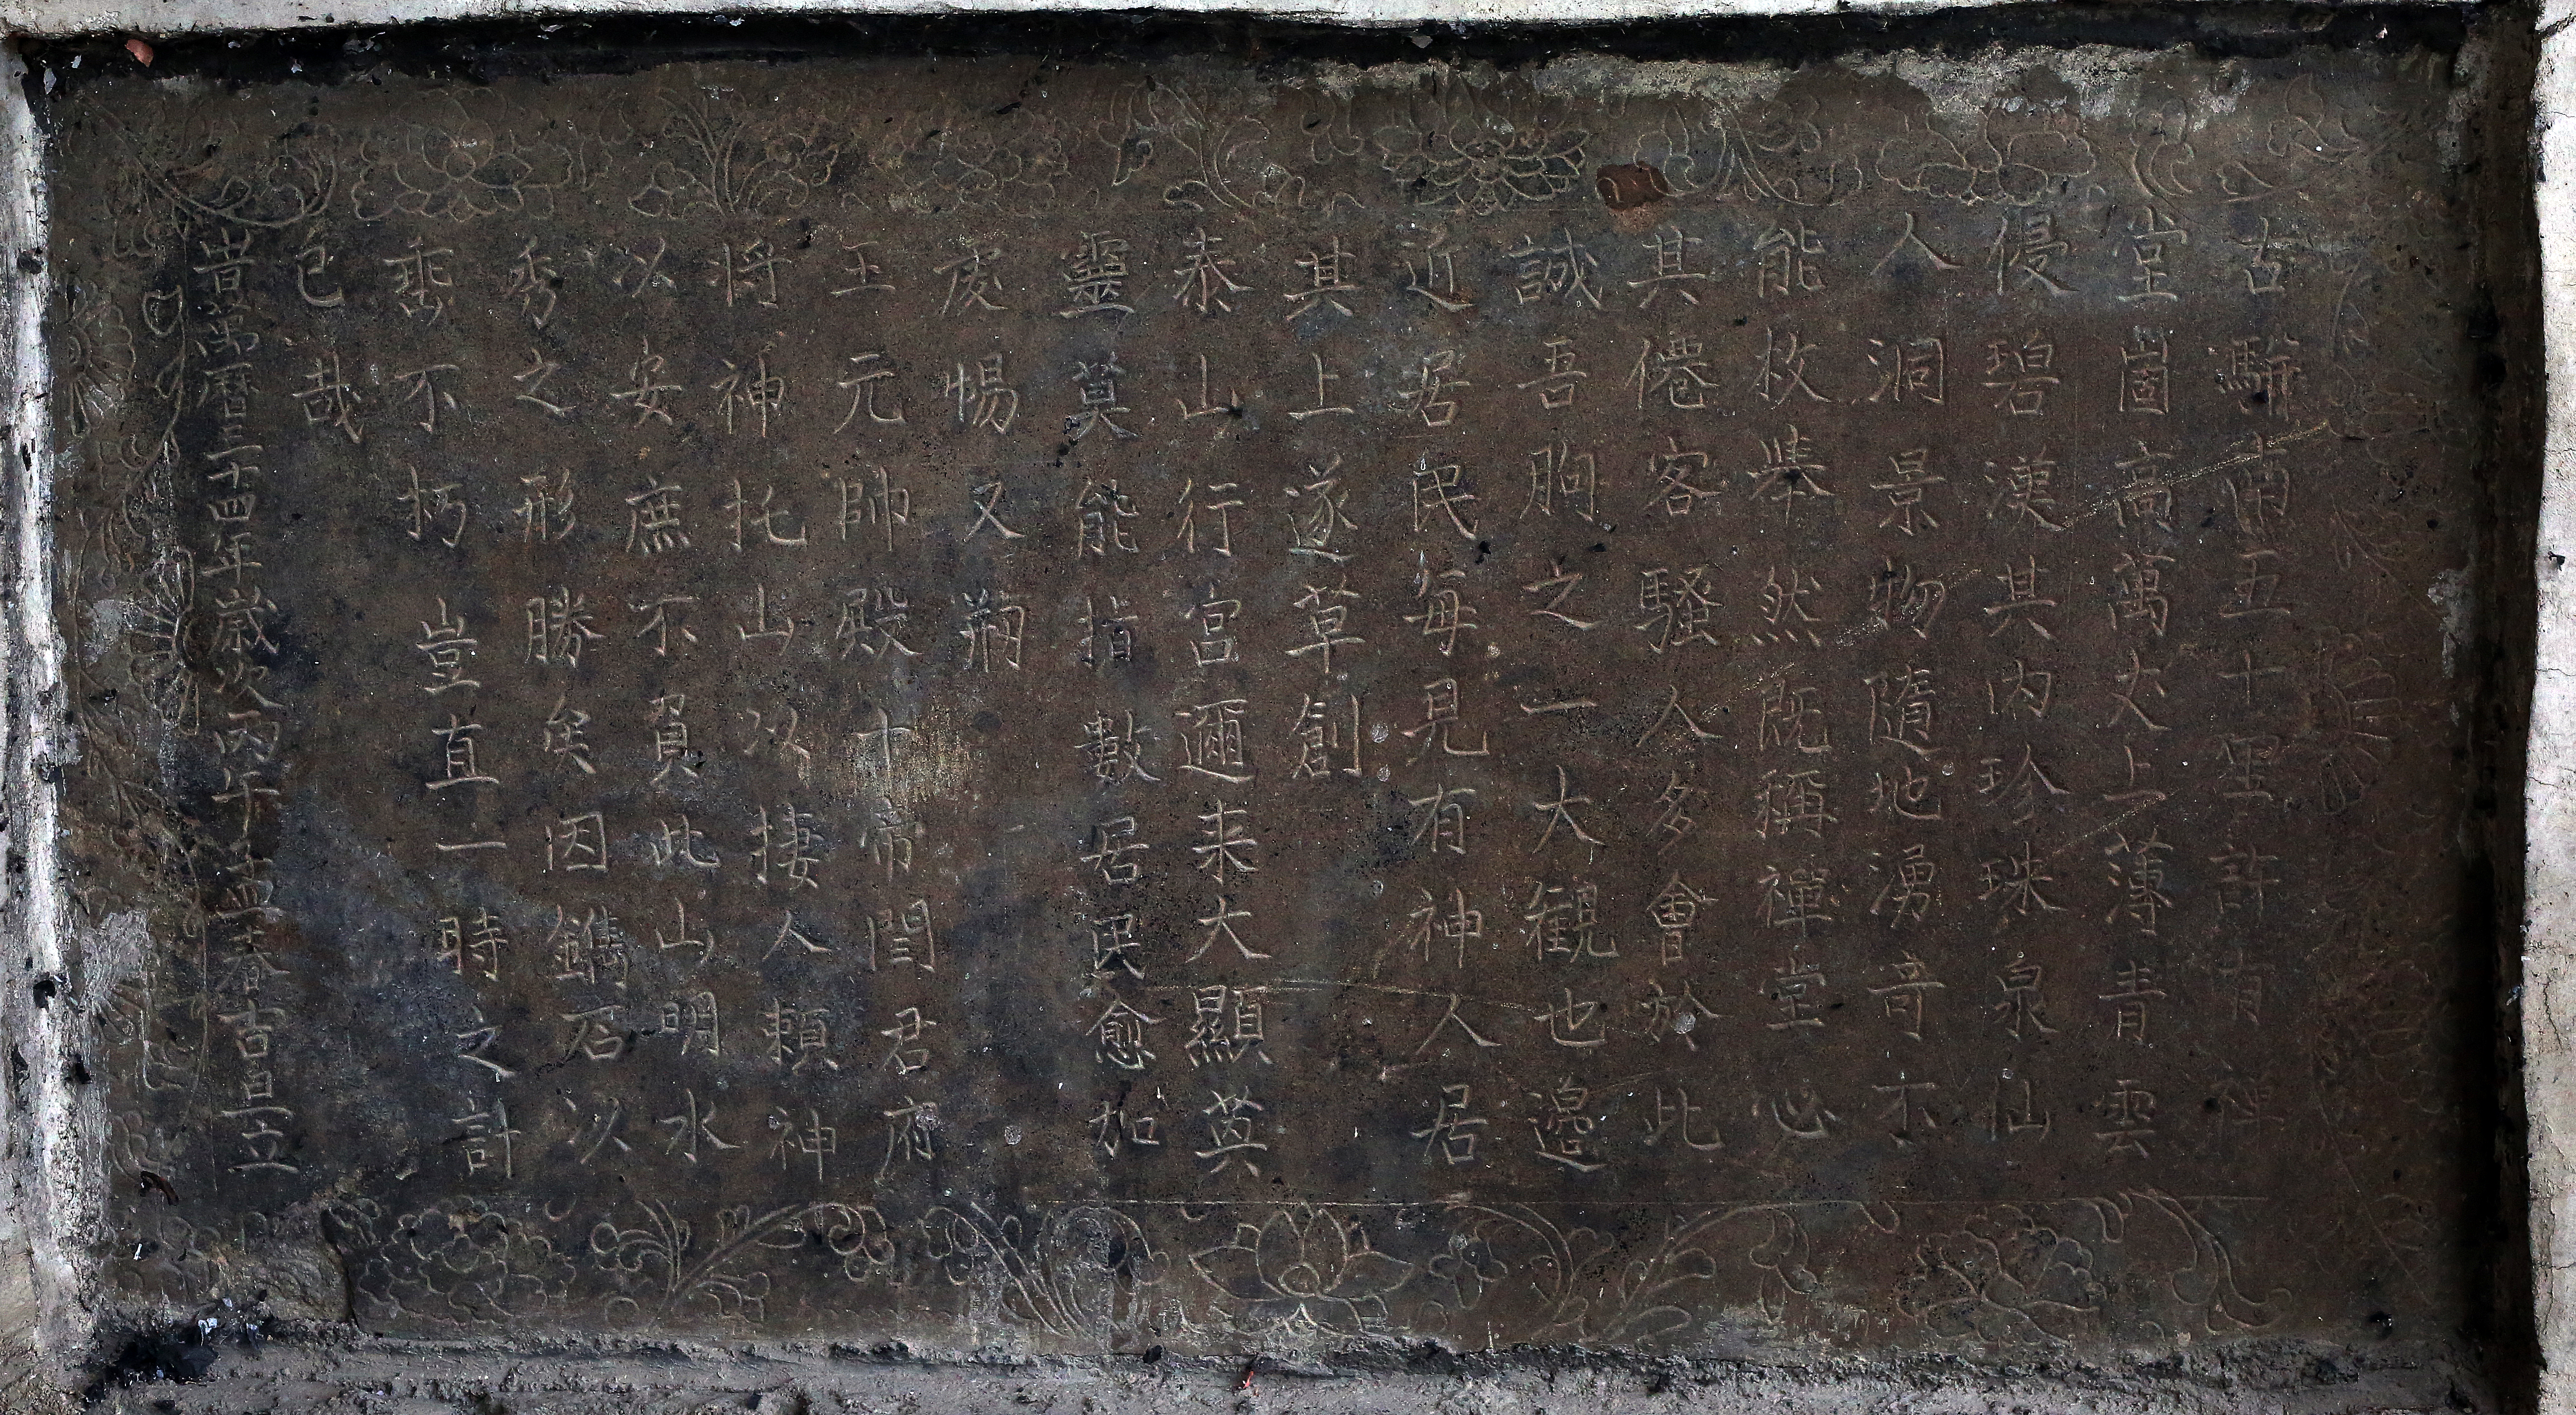 古駢南五十里許有禪
堂崮高萬丈上薄青雲
侵碧漢其內珍珠泉仙
人洞景物隨地湧奇不
能枚舉然既稱禪堂必
其僊客騷人多會於此
誠吾朐之一大觀也邉
近居民每見有神人居
其上遂草創
泰山行宮邇来大顯英
靈莫能指數居民愈加
虔惕又剏
玉元帥殿十帝閻君府
将神托山以捿人頼神
以安庶不負此山明水
秀之形勝矣因鐫石以
垂不朽豈直一時之計
已哉
昔萬曆三十四年嵗次丙午孟春吉旦立